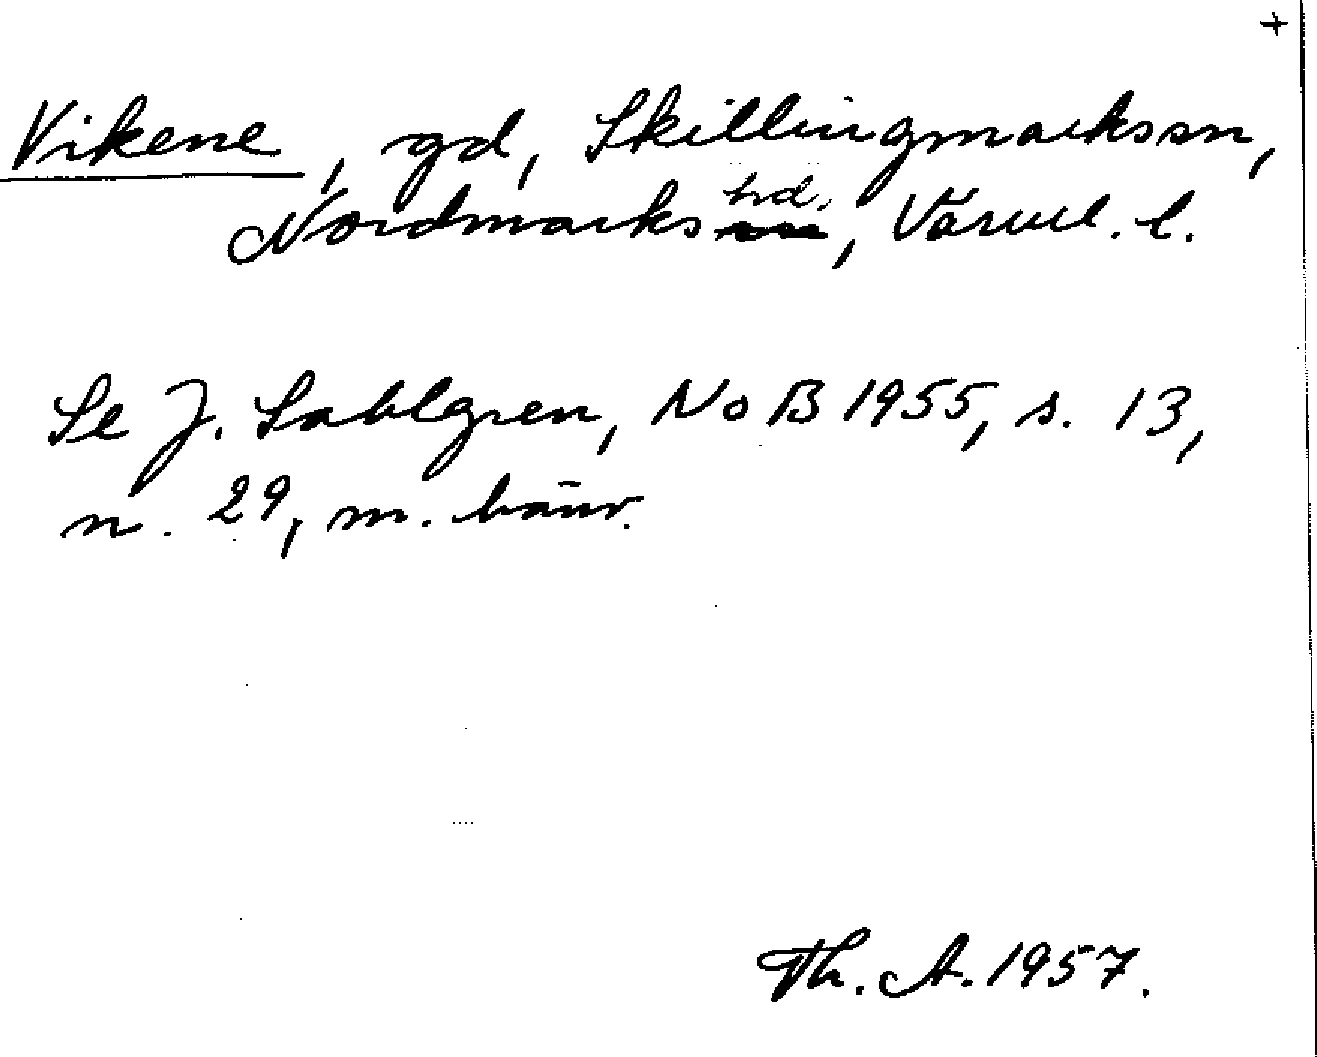 +
Vikene, gd, Skillingmarkssn,
Nordmarks hd, Värml. l.
Se J. Sahlgren, NoB 1955, s. 13,
n. 29, m. hänv.
Th. A. 1957.